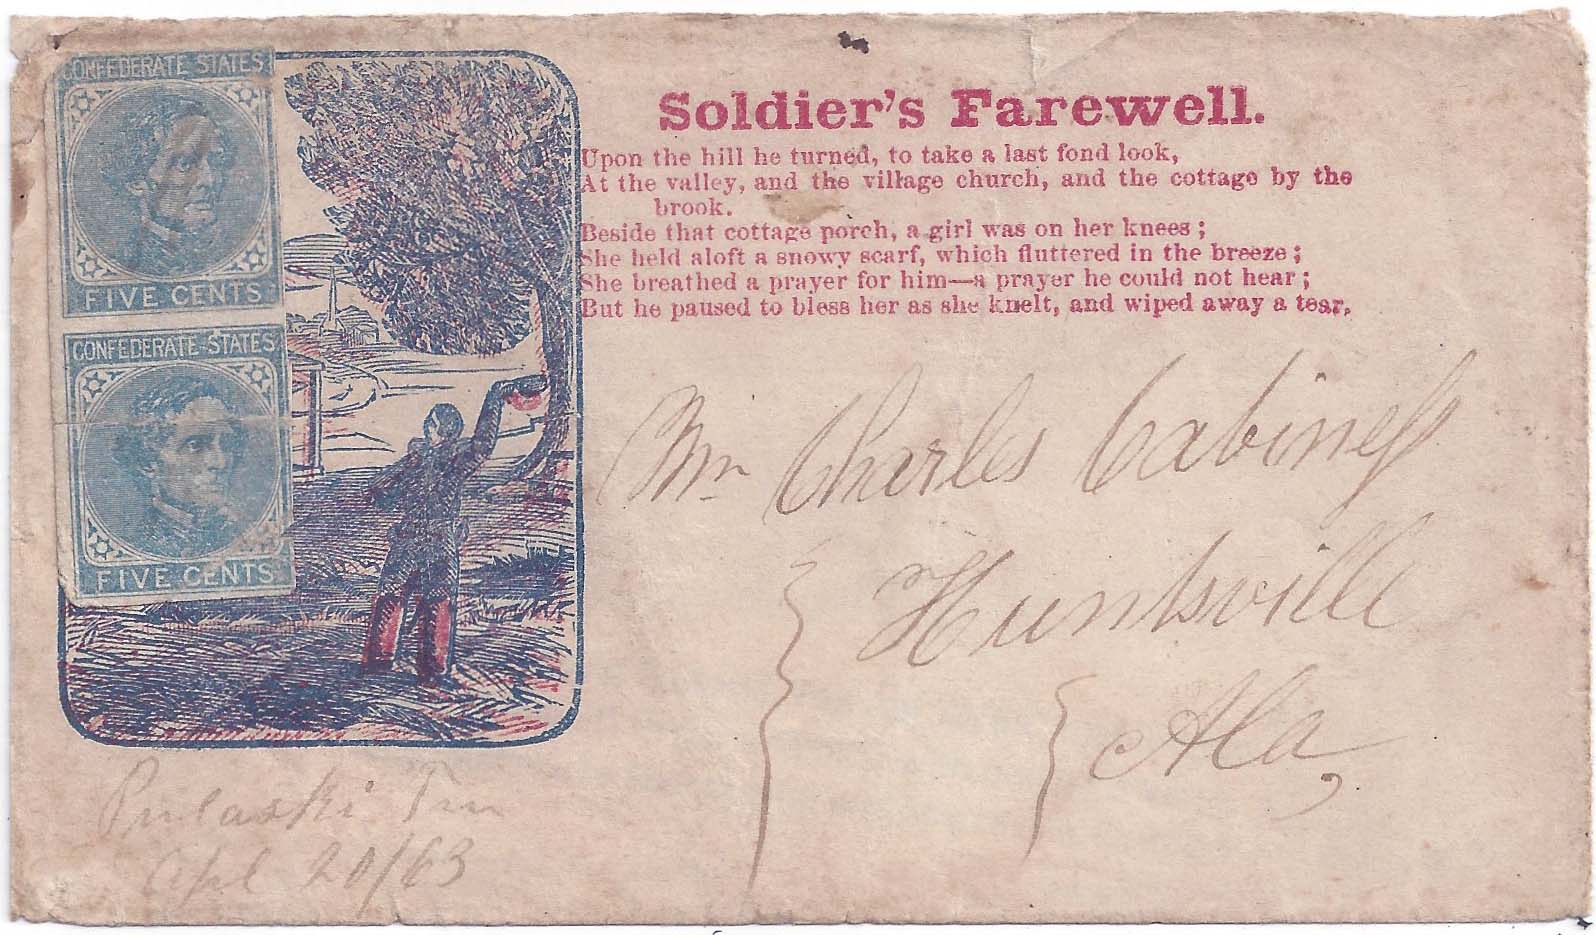 CONFEDERATE STATES
FIVE CENTS
CONFEDERATE STATES
FIVE CENTS
Soldier's Farewell.
Upon the hill he turned, to take a last fond look,
At the valley, and the village church, and the cottage by the
brook.
Beside that cottage porch, a girl was on her knees;
She held aloft a snowy scarf, which fluttered in the breeze;
She breathed a prayer for him—a prayer he could not hear;
But he paused to bless her as she knelt, and wiped away a tear.
Mr Charles Cabiness
Huntsville
Ala,
Pulaski Tnn
Apl 20/63